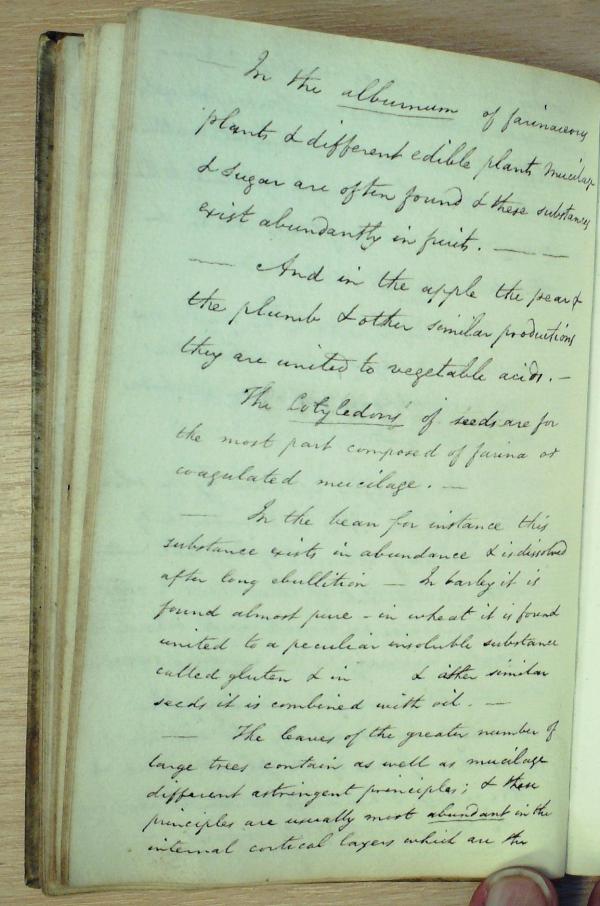 — In the alburnum of farinaceous
plants & different edible plants Mucilage
& sugar are often found & these substances
exist abundantly in fruits. — —
— And in the apple the pear &
the plumb & other similar productions
they are united to vegetable acids. —
The Cotyledons of seeds are for
the most part composed of farina or
coagulated mucilage. —
— In the bean for instance this
substance exists in abundance & is dissolved
after long ebullition — In barley it is
found almost pure - in wheat it is found
united to a peculiar insoluble substance
called gluten & in & other similar
seeds it is combined with oil. —
— The leaves of the greater number of
large trees contain as well as mucilage
different astringent principles; & these
principles are usually most abundant in the
internal cortical layers which are the